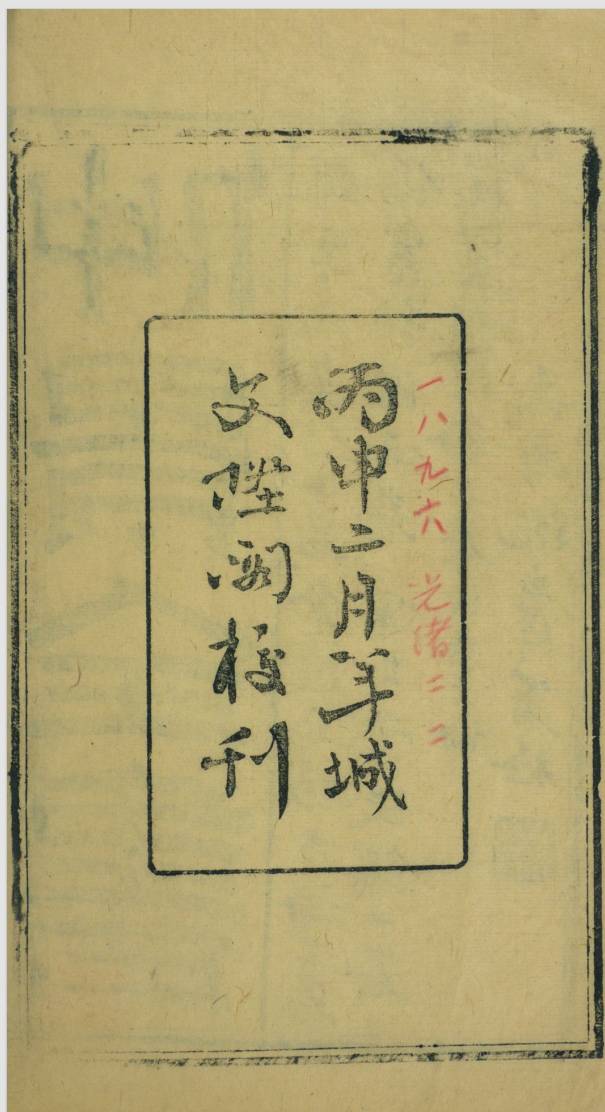 一八九六 光緒二二
丙申二月羊城
文陞閣校刊